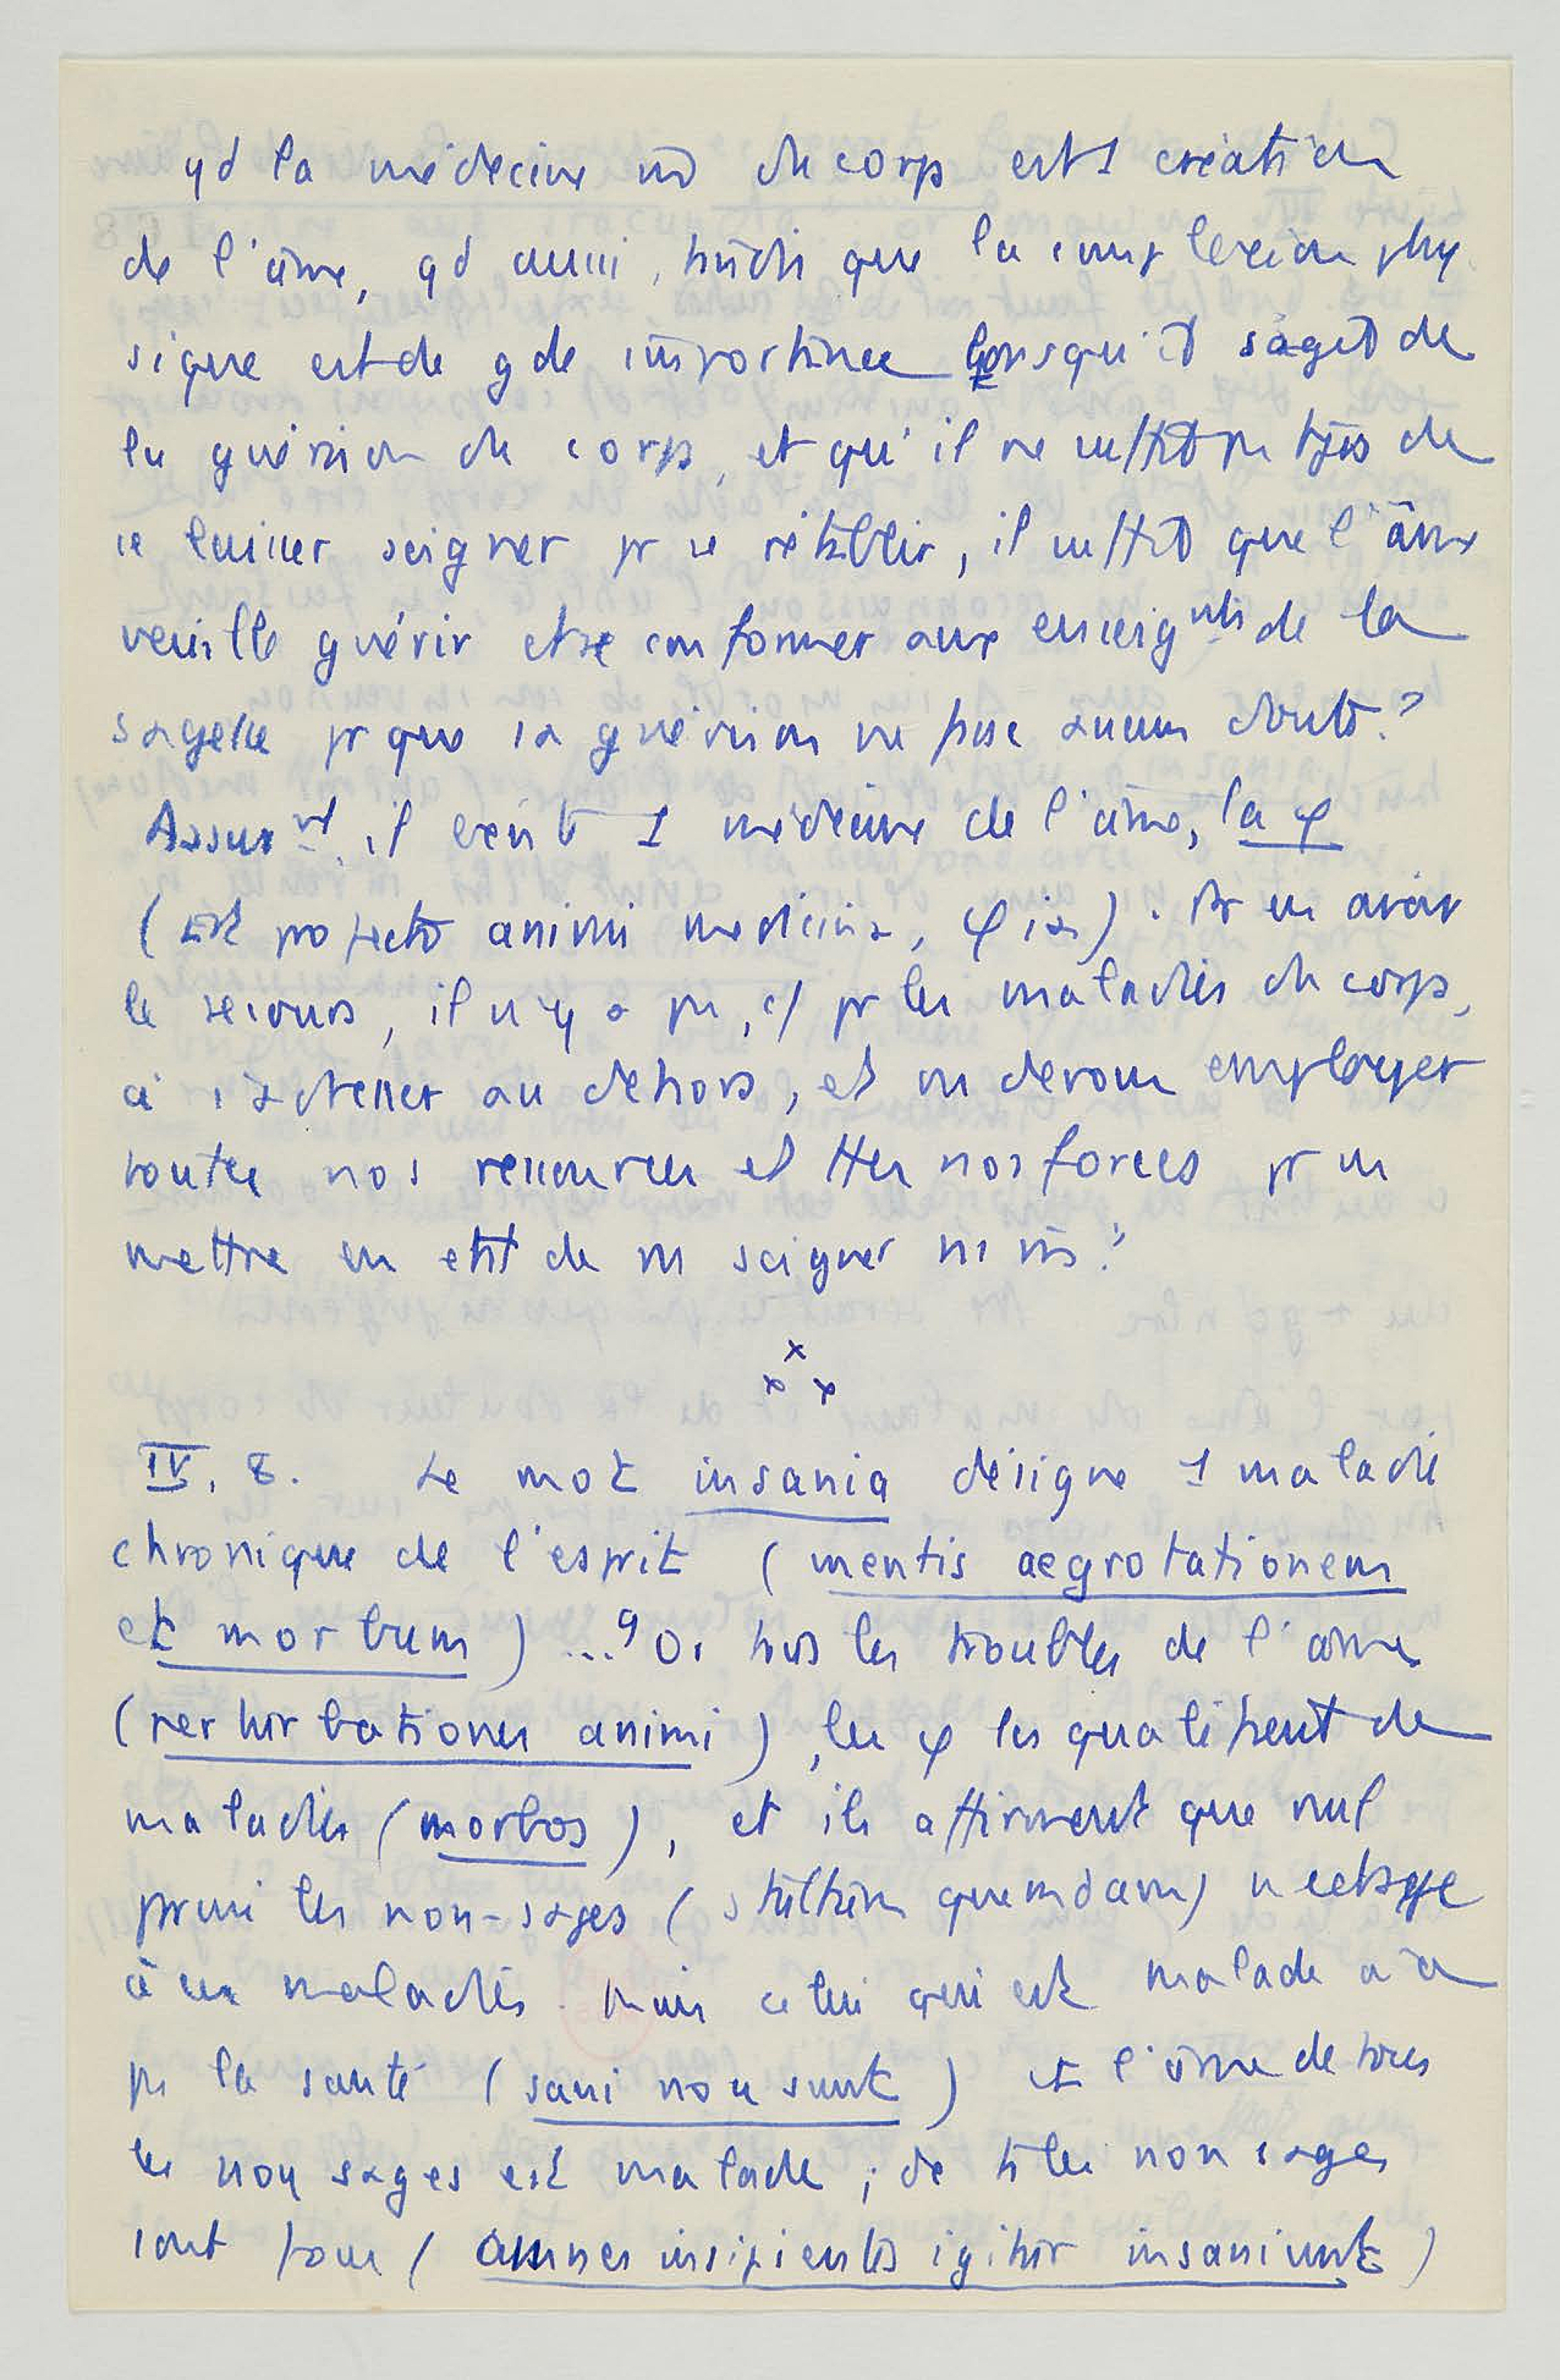 qd la médecine mê du corps est 1 création
de l'âme, qd aussi, tandis que la complexion phy
sique est de gde importance lorsqu'il s'agit de
la guérison du corps, et qu'il ne suffit pas tjs de
se laisser soigner pr se rétablir, il suffit que l'âme
veuille guérir et se conformer aux enseignts de la
sagesse pr que sa guérison ne fasse aucun doute?
Assurnt il existe 1 médecine de l'âme, la φ
(Est profecto animi medicina, φia). Pr en avoir
le secours, il n'y a pas, c/ pr les maladies du corps,
à s'adresser au dehors, et ns devons employer
toutes nos ressources et ttes nos forces pr ns
mettre en état de ns soigner ns mêmes?
x
x x
IV, 8. Le mot insania désigne 1 maladie
chronique de l'esprit (mentis aegrotationem
et morbum) ... 9 Or tous les troubles de l'âme
(perturbationes animi), les φ les qualifient de
maladies (morbos), et ils affirment que nul
parmi les non-sages (stultum quemdam) n'échappe
à ces maladies. Mais celui qui est malade n'a
pas la santé (sani non sunt) et l'âme de tous
les non sages est malade ; de tte les non sages
sont fous (omnes insipientes igitur insaniunt)